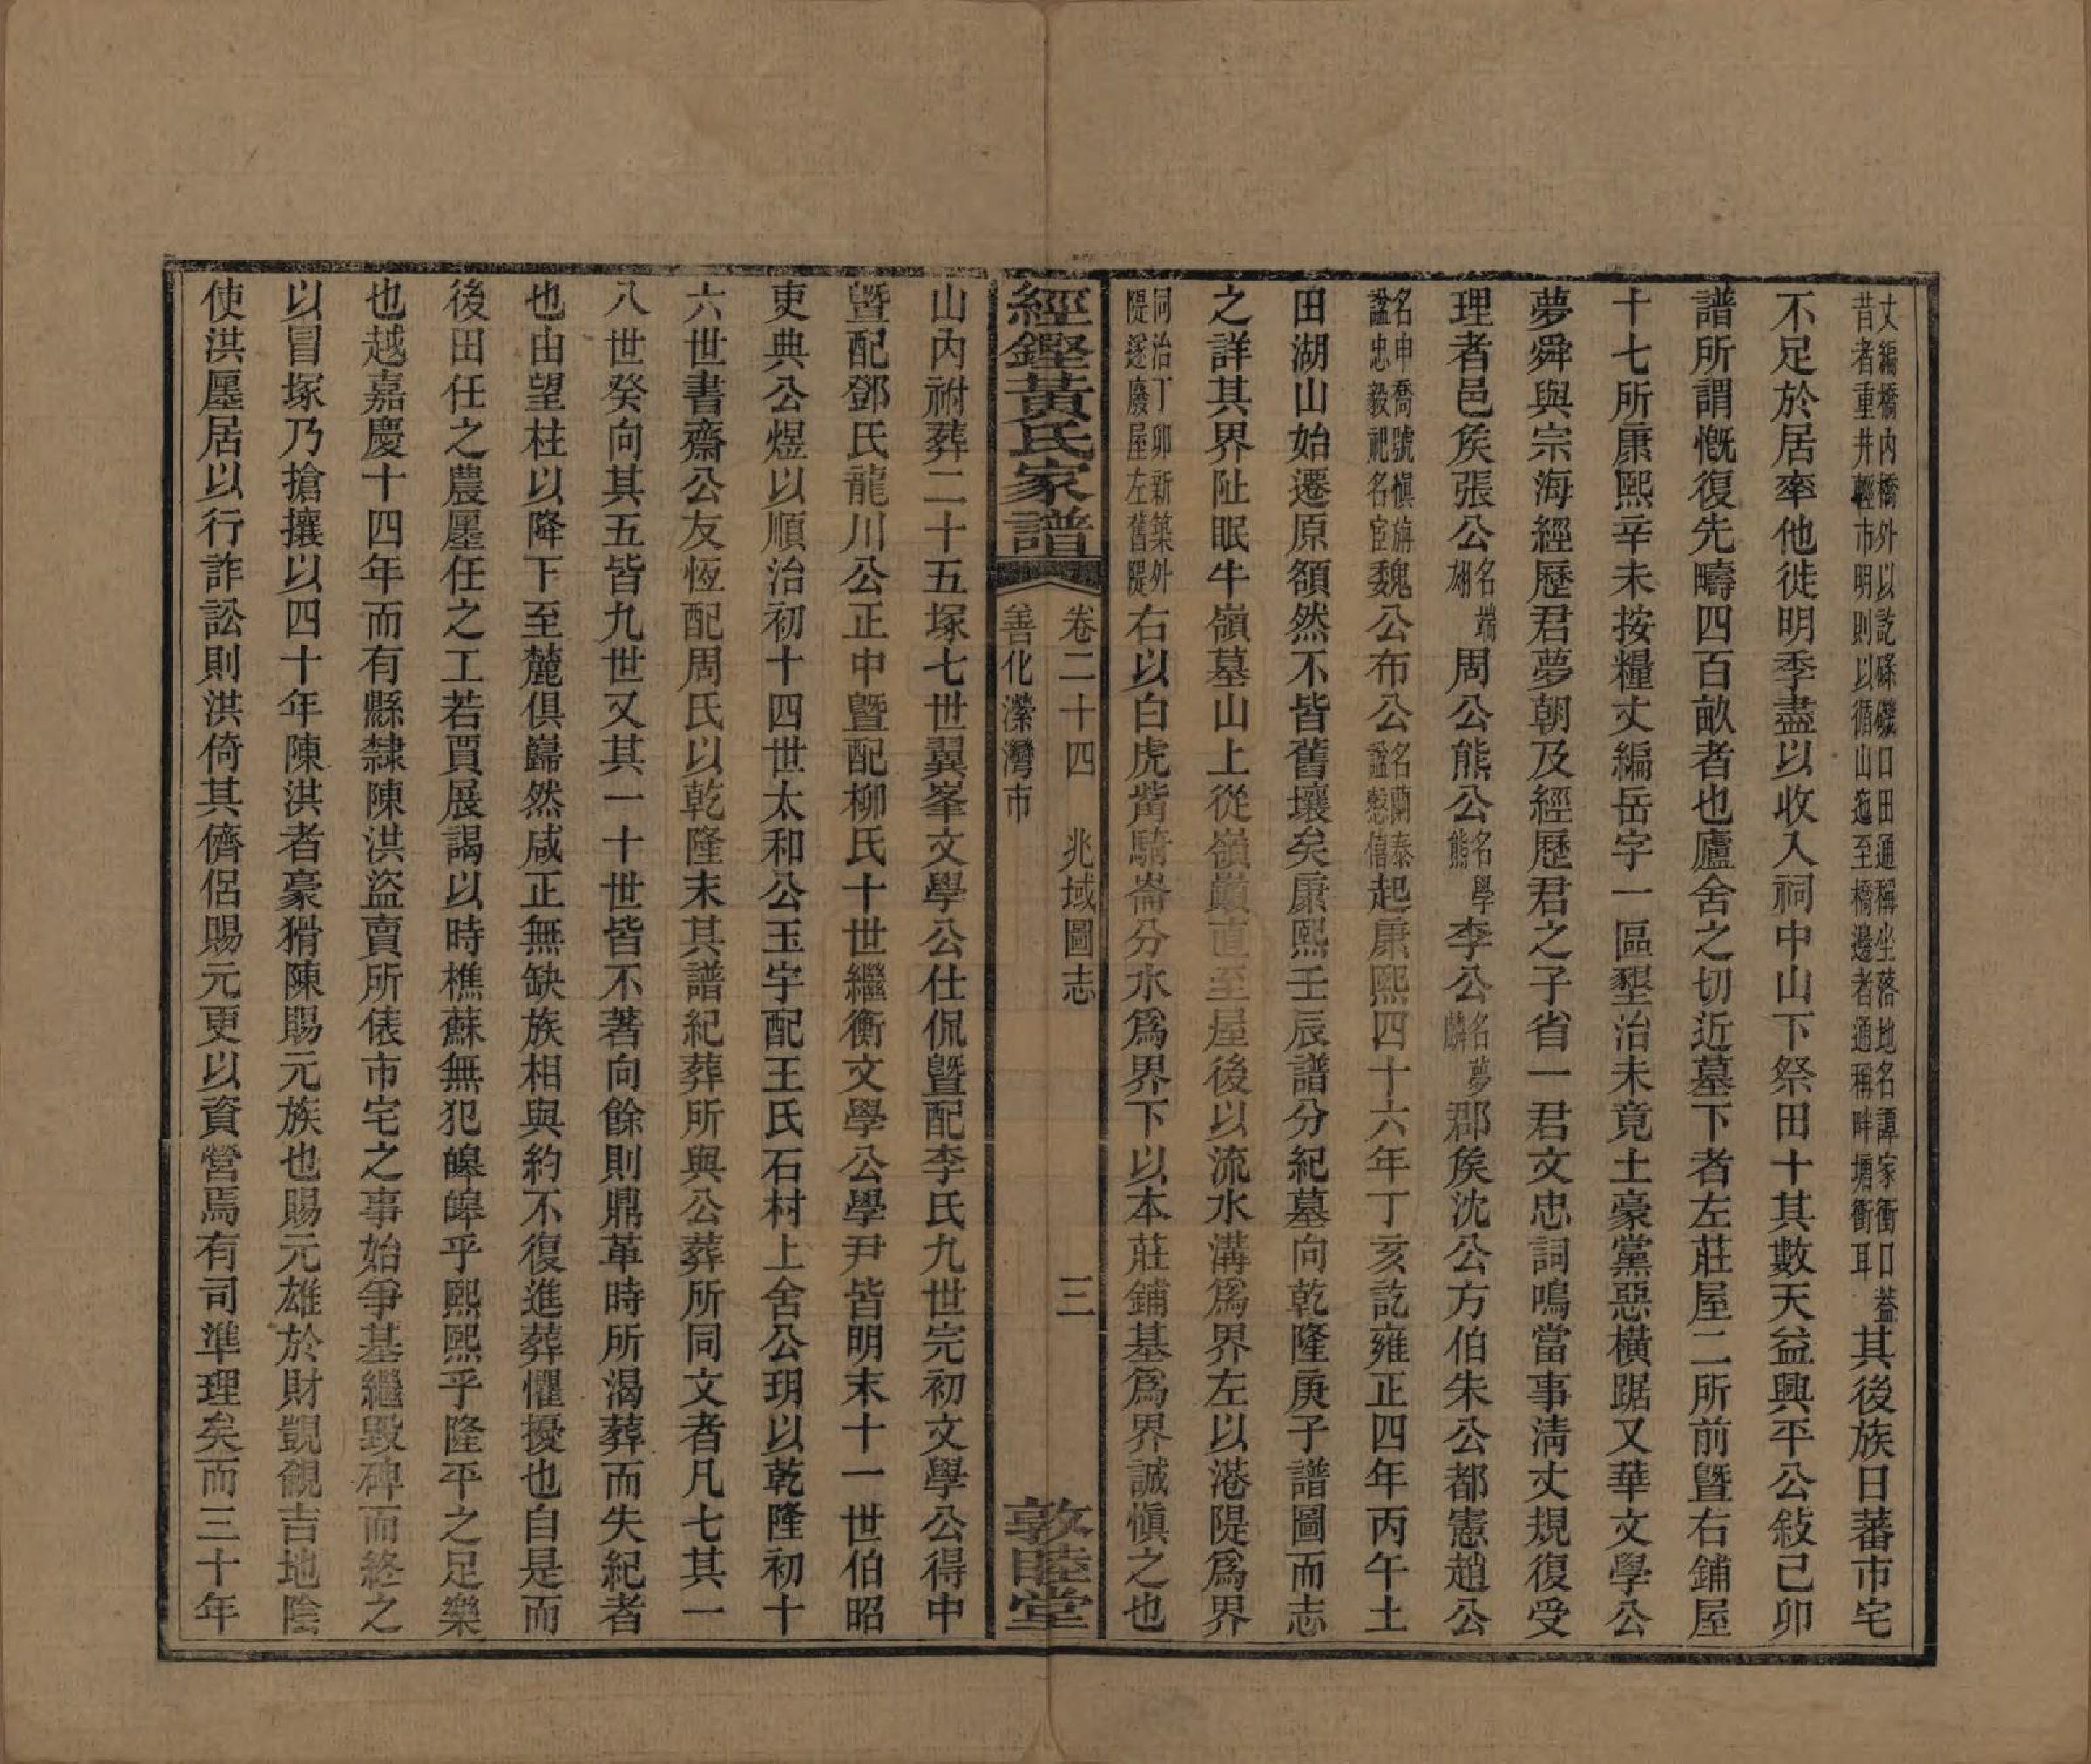 丈編橋內橋外以訖磜磯口田通稱坐落地名譚家衝口葢
昔者重井輕市明則以循山迤至橋邊者通稱畔塘衝耳
其後族日蕃市宅
不足於居率他徙明季盡以收入祠中山下祭田十其數天益興平公敍己卯
譜所謂慨復先疇四百畝者也廬舍之切近墓下者左莊屋二所前曁右鋪屋
十七所康熙辛未按糧丈編岳字一區墾治未竟土豪黨惡橫踞又華文學公
夢舜與宗海經歷君夢朝及經歷君之子省一君文忠詞鳴當事淸丈規復受
理者邑矦張公名端翃周公熊公名學熊李公名夢麟郡矦沈公方伯朱公都憲趙公
名申喬號愼旃諡忠毅祀名宦魏公布公名蘭泰諡慤信起康熙四十六年丁亥訖雍正四年丙午土
田湖山始遷原額然不皆舊壤矣康熙壬辰譜分紀墓向乾隆庚子譜圖而志
之詳其界阯眠牛嶺墓山上從嶺巓直至屋後以流水溝爲界左以港隄爲界
同治丁卯新築外隄遂廢屋左舊隄右以白虎觜騎崙分水爲界下以本莊鋪基爲界誠愼之也
經鏗黃氏家譜
卷二十四 兆域圖志 三
善化濚灣市
敦睦堂
山內祔葬二十五塚七世翼峯文學公仕侃曁配李氏九世完初文學公得中
曁配鄧氏龍川公正中曁配柳氏十世繼衡文學公學尹皆明末十一世伯昭
吏典公煜以順治初十四世太和公玉宇配王氏石村上舍公玥以乾隆初十
六世書齋公友恆配周氏以乾隆末其譜紀葬所與公葬所同文者凡七其一
八世癸向其五皆九世又其一十世皆不著向餘則鼎革時所渴葬而失紀者
也由望柱以降下至麓俱巋然咸正無缺族相與約不復進葬懼擾也自是而
後田任之農廛任之工若賈展謁以時樵蘇無犯皞皞乎熙熙乎隆平之足樂
也越嘉慶十四年而有縣隸陳洪盜賣所俵市宅之事始爭基繼毀碑而終之
以冒塚乃搶攘以四十年陳洪者豪猾陳賜元族也賜元雄於財覬覦吉地陰
使洪廛居以行詐訟則洪倚其儕侶賜元更以資營焉有司準理矣而三十年